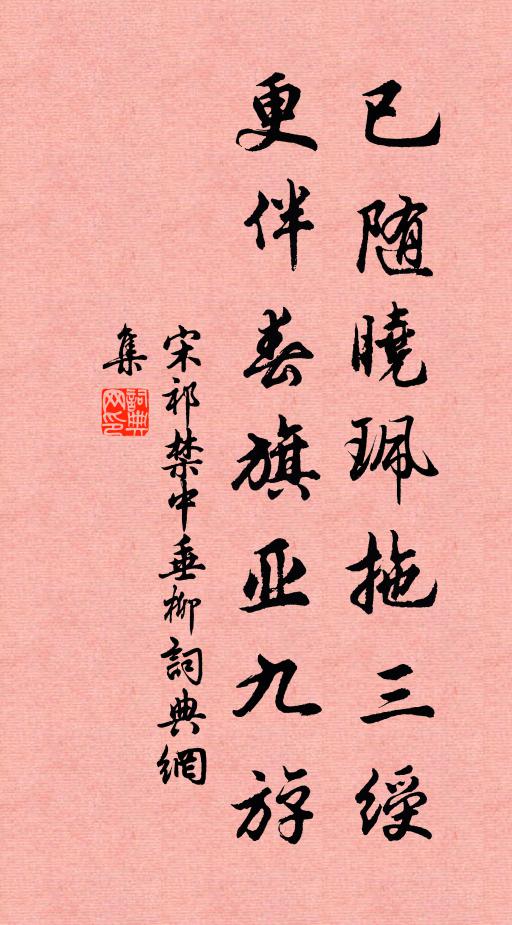 已随曉珮拖三綬
更伴春旗亚九斿
宋祁禁中垂柳詞典網
集
詞典網印